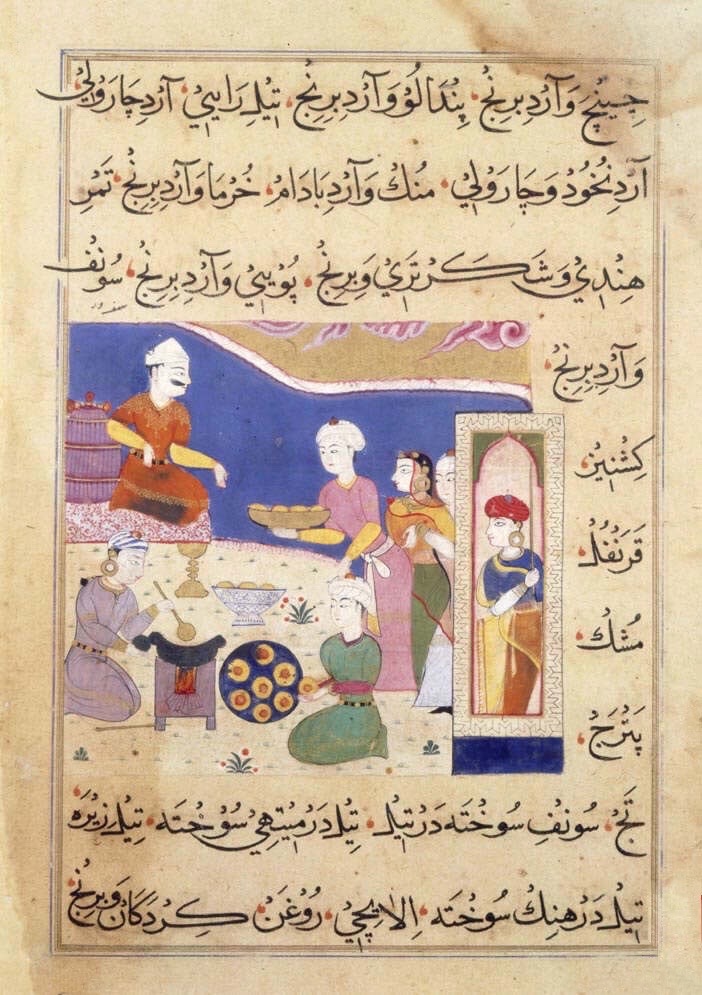 چینچ وَآردِ بِرِنْج، پِنْدَالُوْ وَآردِ بِرِنْج، تیلِ رَایِیْ، آردِ چَارَوْلِیْ
آردِ نُخُودْ وَ چَارَوْلِیْ، مُنك وَآردِ بَادَامْ، خُرْمَا وَآردِ بِرِنْج، تَمْرِ
هِنْدِي وَشَاكَرْتَرِيْ وَبِرِنْج، پُوْیِيْ وَآردِ بِرِنْج، سُونْف
وَآردِ بِرِنْج
كِشْنِیز
قَرَنْفُل،
مُشْك،
پَتْرَجْ،
تَجْ، سُونْفِ سُوخْتَه دَرْ تیل، تیل دَرْ مِیْتهِيْ سُوخْتَه، تیل زِیْرَه
تیل دَرْ هِنْك سُوخْتَه، اِلَایِچِيْ، رُوْغَنْ، كِرْدَگَانْ وَبِرِنْج